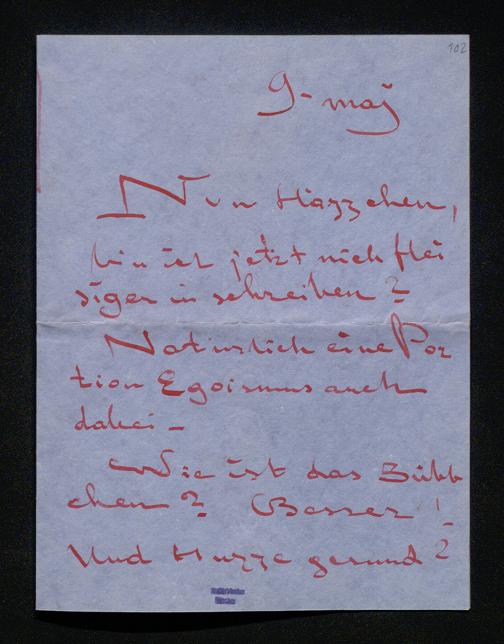 102
9- maj
Nun Häzzchen,
bin ich jetzt nich flei
siger in schreiben ?
Natürlich eine Por
tion Egoismus auch
dabei -
Wie ist das Bübb
chen ? Besser !
Und Huzze gesund ?